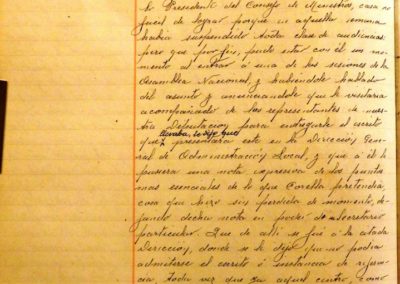 le Presidente del Consejo de Ministros, cosa no
facil de lograr porque en aquella semana
habia suspendido toda clase de audiencias,
pero que por fin, pudo estar con él un mo-
mento al entrar á una de las sesiones de la
Asamblea Nacional, y habiendole hablado
del asunto y anunciandole que le visitaria
acompañado de los representantes de nues-
tra Diputacion para entregarle el escrito
llevaba, le dijo que
que presentara este en la Direccion Gene-
ral de Administracion Local, y que á él le
pusiera una nota expresiva de los puntos
mas esenciales de lo que Corella pretendia,
cosa que hizo sin perdida de momento, de-
jando dicha nota en poder de su Secretario
particular. Que de alli se fué á la citada
Direccion, donde se le dijo que no podia
admitirse el escrito ó instancia de referen-
cia toda vez que en aquel centro, como